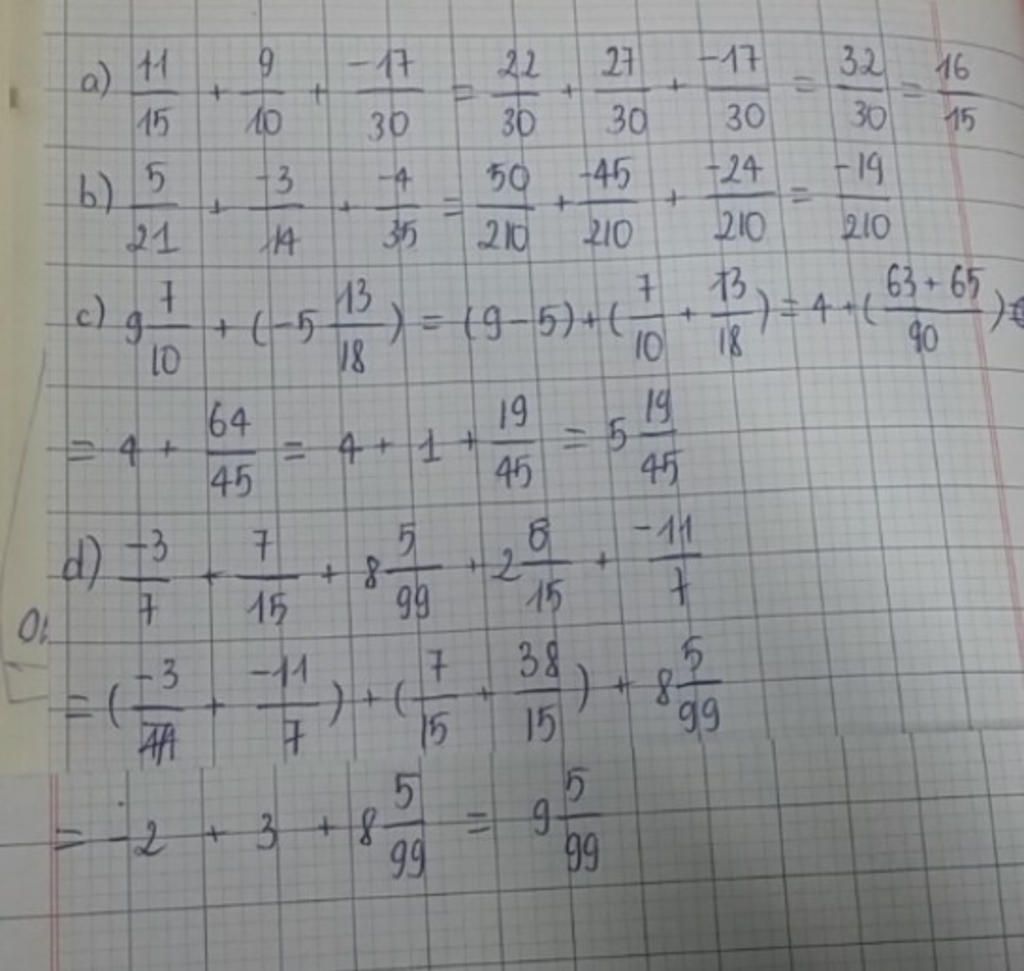 a) 11/15 + 9/10 + -17/30 = 22/30 + 27/30 + -17/30 = 32/30 = 16/15
b) 5/21 + -3/14 + -4/35 = 50/210 + -45/210 + -24/210 = -19/210
c) 9 7/10 + (-5 13/18) = (9-5) + (7/10 + 13/18) = 4 + (63+65/90)
= 4 + 64/45 = 4 + 1 + 19/45 = 5 19/45
d) -3/7 + 7/15 + 8 5/99 + 2 8/15 + -11/7
= (-3/ + -11/7) + (7/15 + 38/15) + 8 5/99
= -2 + 3 + 8 5/99 = 9 5/99